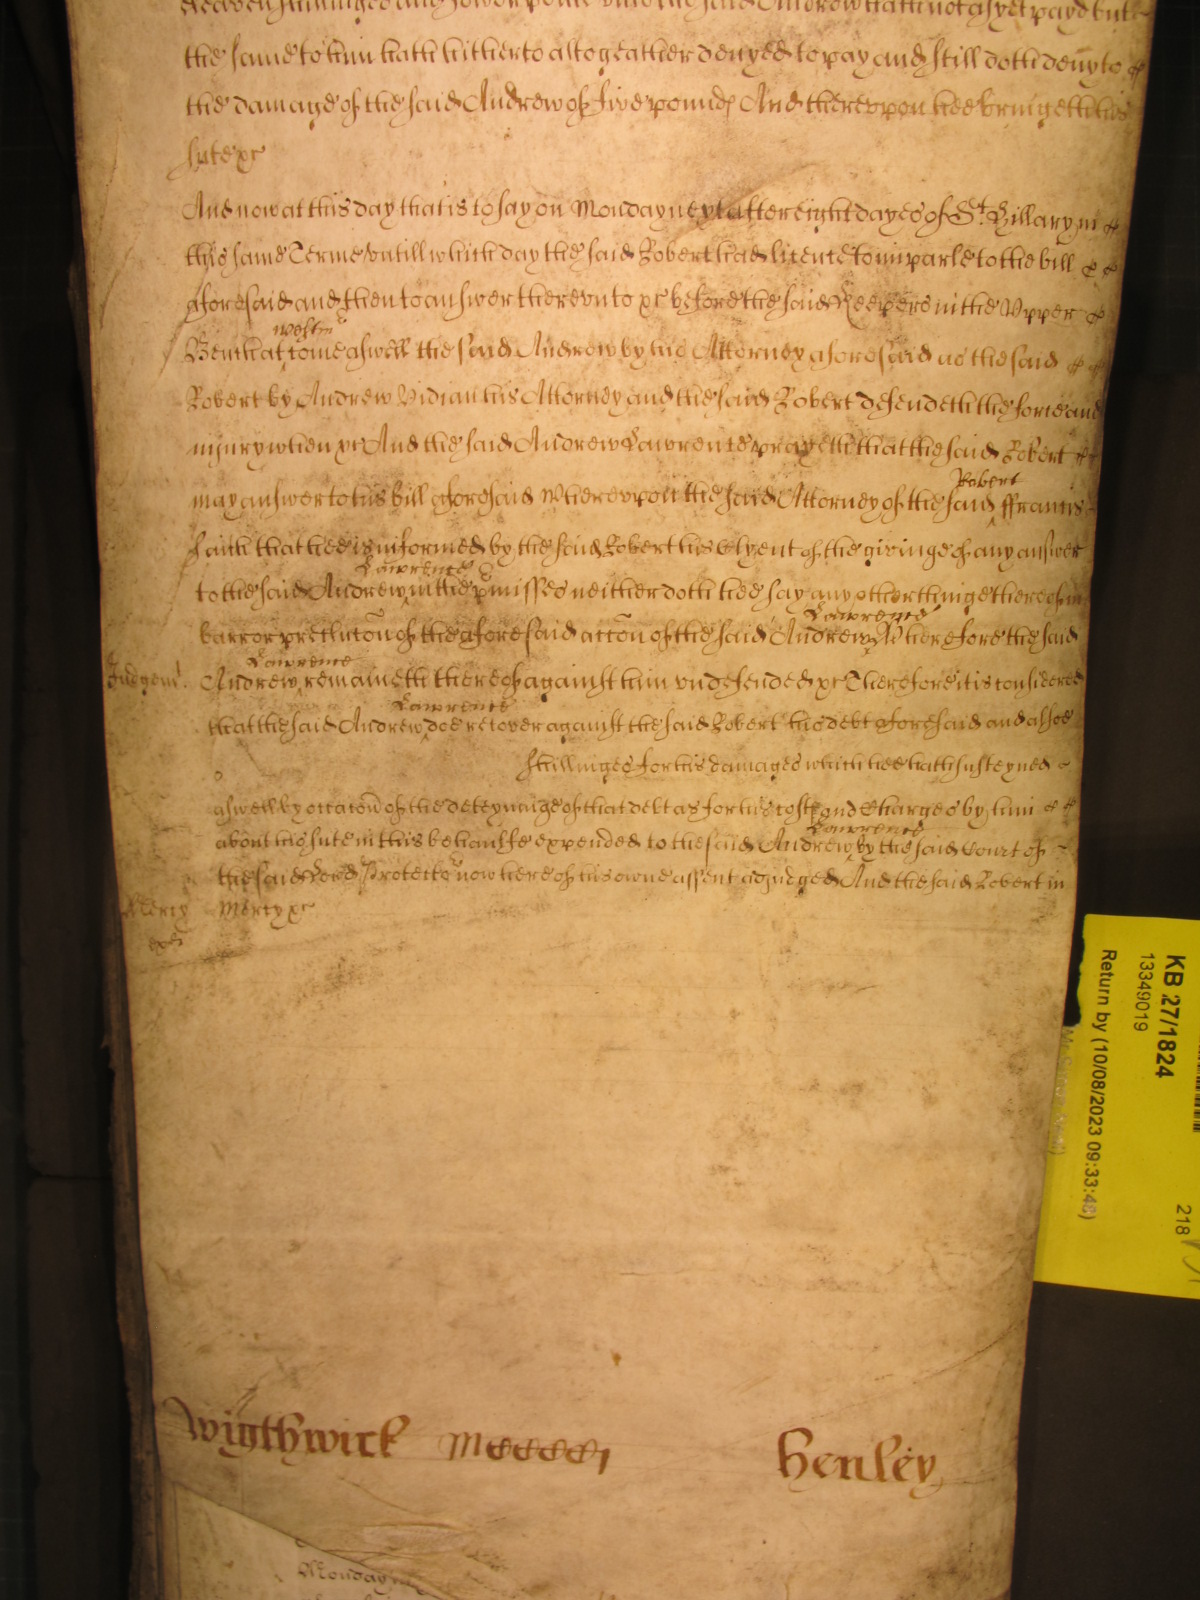 the same to him hath hitherto altogeather denyed to pay and still doth deny to
the damage of the said Andrew of five pounds And therevpon hee bringeth his
sute &c
And now at this day that is to say on Monday next after eight dayes of St Hillary in
this same Terme vntill which day the said Robert had licence to imparle to the bill
aforesaid and then to answer therevnto &c before the said Keepers in the Vpper
westm̃
Bench at come aswell the said Andrew by his Attorney aforesaid as the said
Robert by Andrew Vidian his Attorney and the said Robert defendeth the force and
injury when &c And the said Andrew Lawrence prayeth that the said Robert
Robert
may answer to his bill aforesaid Wherevpon the said Attorney of the said ffrancis
saith that hee is informed by the said Robert his Clyent of the givinge of any answer
Lawrence
to the said Andrew in the p̃misses neither doth hee say any other thinge thereof in
Lawrence
barr or preclucõn of the aforesaid accõn of the said Andrew Wherefore the said
Lawrence
Judgem̃t. Andrew remaineth thereof against him vndefended &c Therefore it is considered
Lawrence
that the said Andrew doe recover against the said Robert his debt aforesaid and alsoe
shillinges for his damages which hee hath susteyned
aswell by occacõn of the deteyninge of that debt as for his costs and Charges by him
Lawrence
about his sute in this behaulfe expended to the said Andrew by the said Court of
the said Lord Protector now here of his owne assent adjudged And the said Robert in
Mercy Mercy &c
Wigthwick MCCCCCI Henley
Monday
KB 27/1824
13349019
Return by (10/08/2023 09:33:48)
218